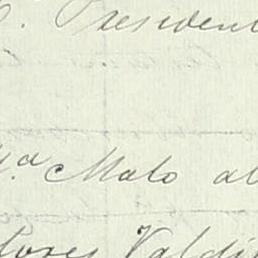 C. President
Mª Malo al
ores Valdi